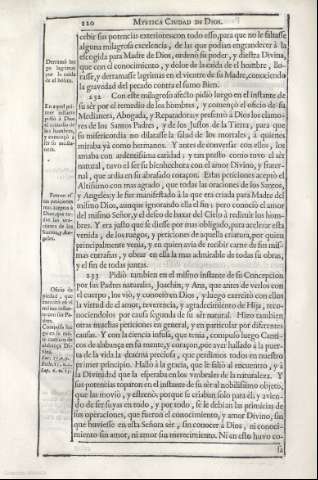 220 MYSTICA CIUDAD DE DIOS.
cebir sus potencias exteriores con todo esso, para que no le faltasse
alguna milagrosa excelencia, de las que podian engrandecer à la
escogida para Madre de Dios, ordenò su poder, y diestra Divina,
que con el conocimiento, y dolor de la caìda de el hombre, llo-
rasse, y derramasse lagrimas en el vientre de su Madre, conociendo
la gravedad del pecado contra el sumo Bien.
232 Con este milagroso afecto pidiò luego en el instante de
su sèr por el remedio de los hombres, y començò el oficio de
Medianera, Abogada, y Reparadora; y presentò à Dios los clamo-
res de los Santos Padres, y de los Justos de la Tierra, para que
su misericordia no dilatasse la salud de los mortales, à quienes
miraba yà como hermanos. Y antes de conversar con ellos, los
amaba con ardentissima caridad; y tan presto como tuvo el sèr
natural, tuvo el ser su bienhechora con el amor Divino, y frater-
nal, que ardia en su abrasado coraçon. Estas peticiones aceptò el
Altissimo con mas agrado, que todas las oraciones de los Santos,
y Angeles; y le fue manifestado à la que era criada para Madre del
mismo Dios, aunque ignorando ella el fin; pero conociò el amor
del mismo Señor, y el deseo de baxar del Cielo à redimir los hom-
bres. Y era justo que se diesse por mas obligado, para acelerar esta
venida, de los ruegos, y peticiones de aquella criatura, por quien
principalmente venia, y en quien avia de recibir carne de sus mis-
mas entrañas, y obrar en ella la mas admirable de todas sus obras,
y el fin de todas juntas.
233 Pidiò tambien en el mismo instante de su Concepcion
por sus Padres naturales, Joachin, y Ana, que antes de verlos con
el cuerpo, los viò, y conociò en Dios, y luego exercitò con ellos
la virtud de el amor, reverencia, y agradecimiento de Hija, reco-
nociendolos por causa segunda de su sèr natural. Hizo tambien
otras muchas peticiones en general, y en particular por diferentes
causas. Y con la ciencia infusa, que tenia, compuso luego Canti-
cos de alabança en su mente, y coraçon, por aver hallado à la puer-
ta de la vida la dracma preciosa, que perdimos todos en nuestro
primer principio. Hallò à la gracia, que le saliò al encuentro, y à
la Divinidad que la esperaba en los umbrales de la naturaleza. Y
sus potencias toparon en el instante de su sèr al nobilissimo objeto,
que las moviò, y estrenò; porque se criaban solo para èl; y avien-
do de ser suyas en todo, y por todo, se le debian las primicias de
sus operaciones, que fueron el conocimiento, y amor Divino, sin
que huviesse en esta Señora sèr, sin conocer à Dios, ni conoci-
miento sin amor, ni amor sin merecimiento. Ni en esto huvo co-
sa